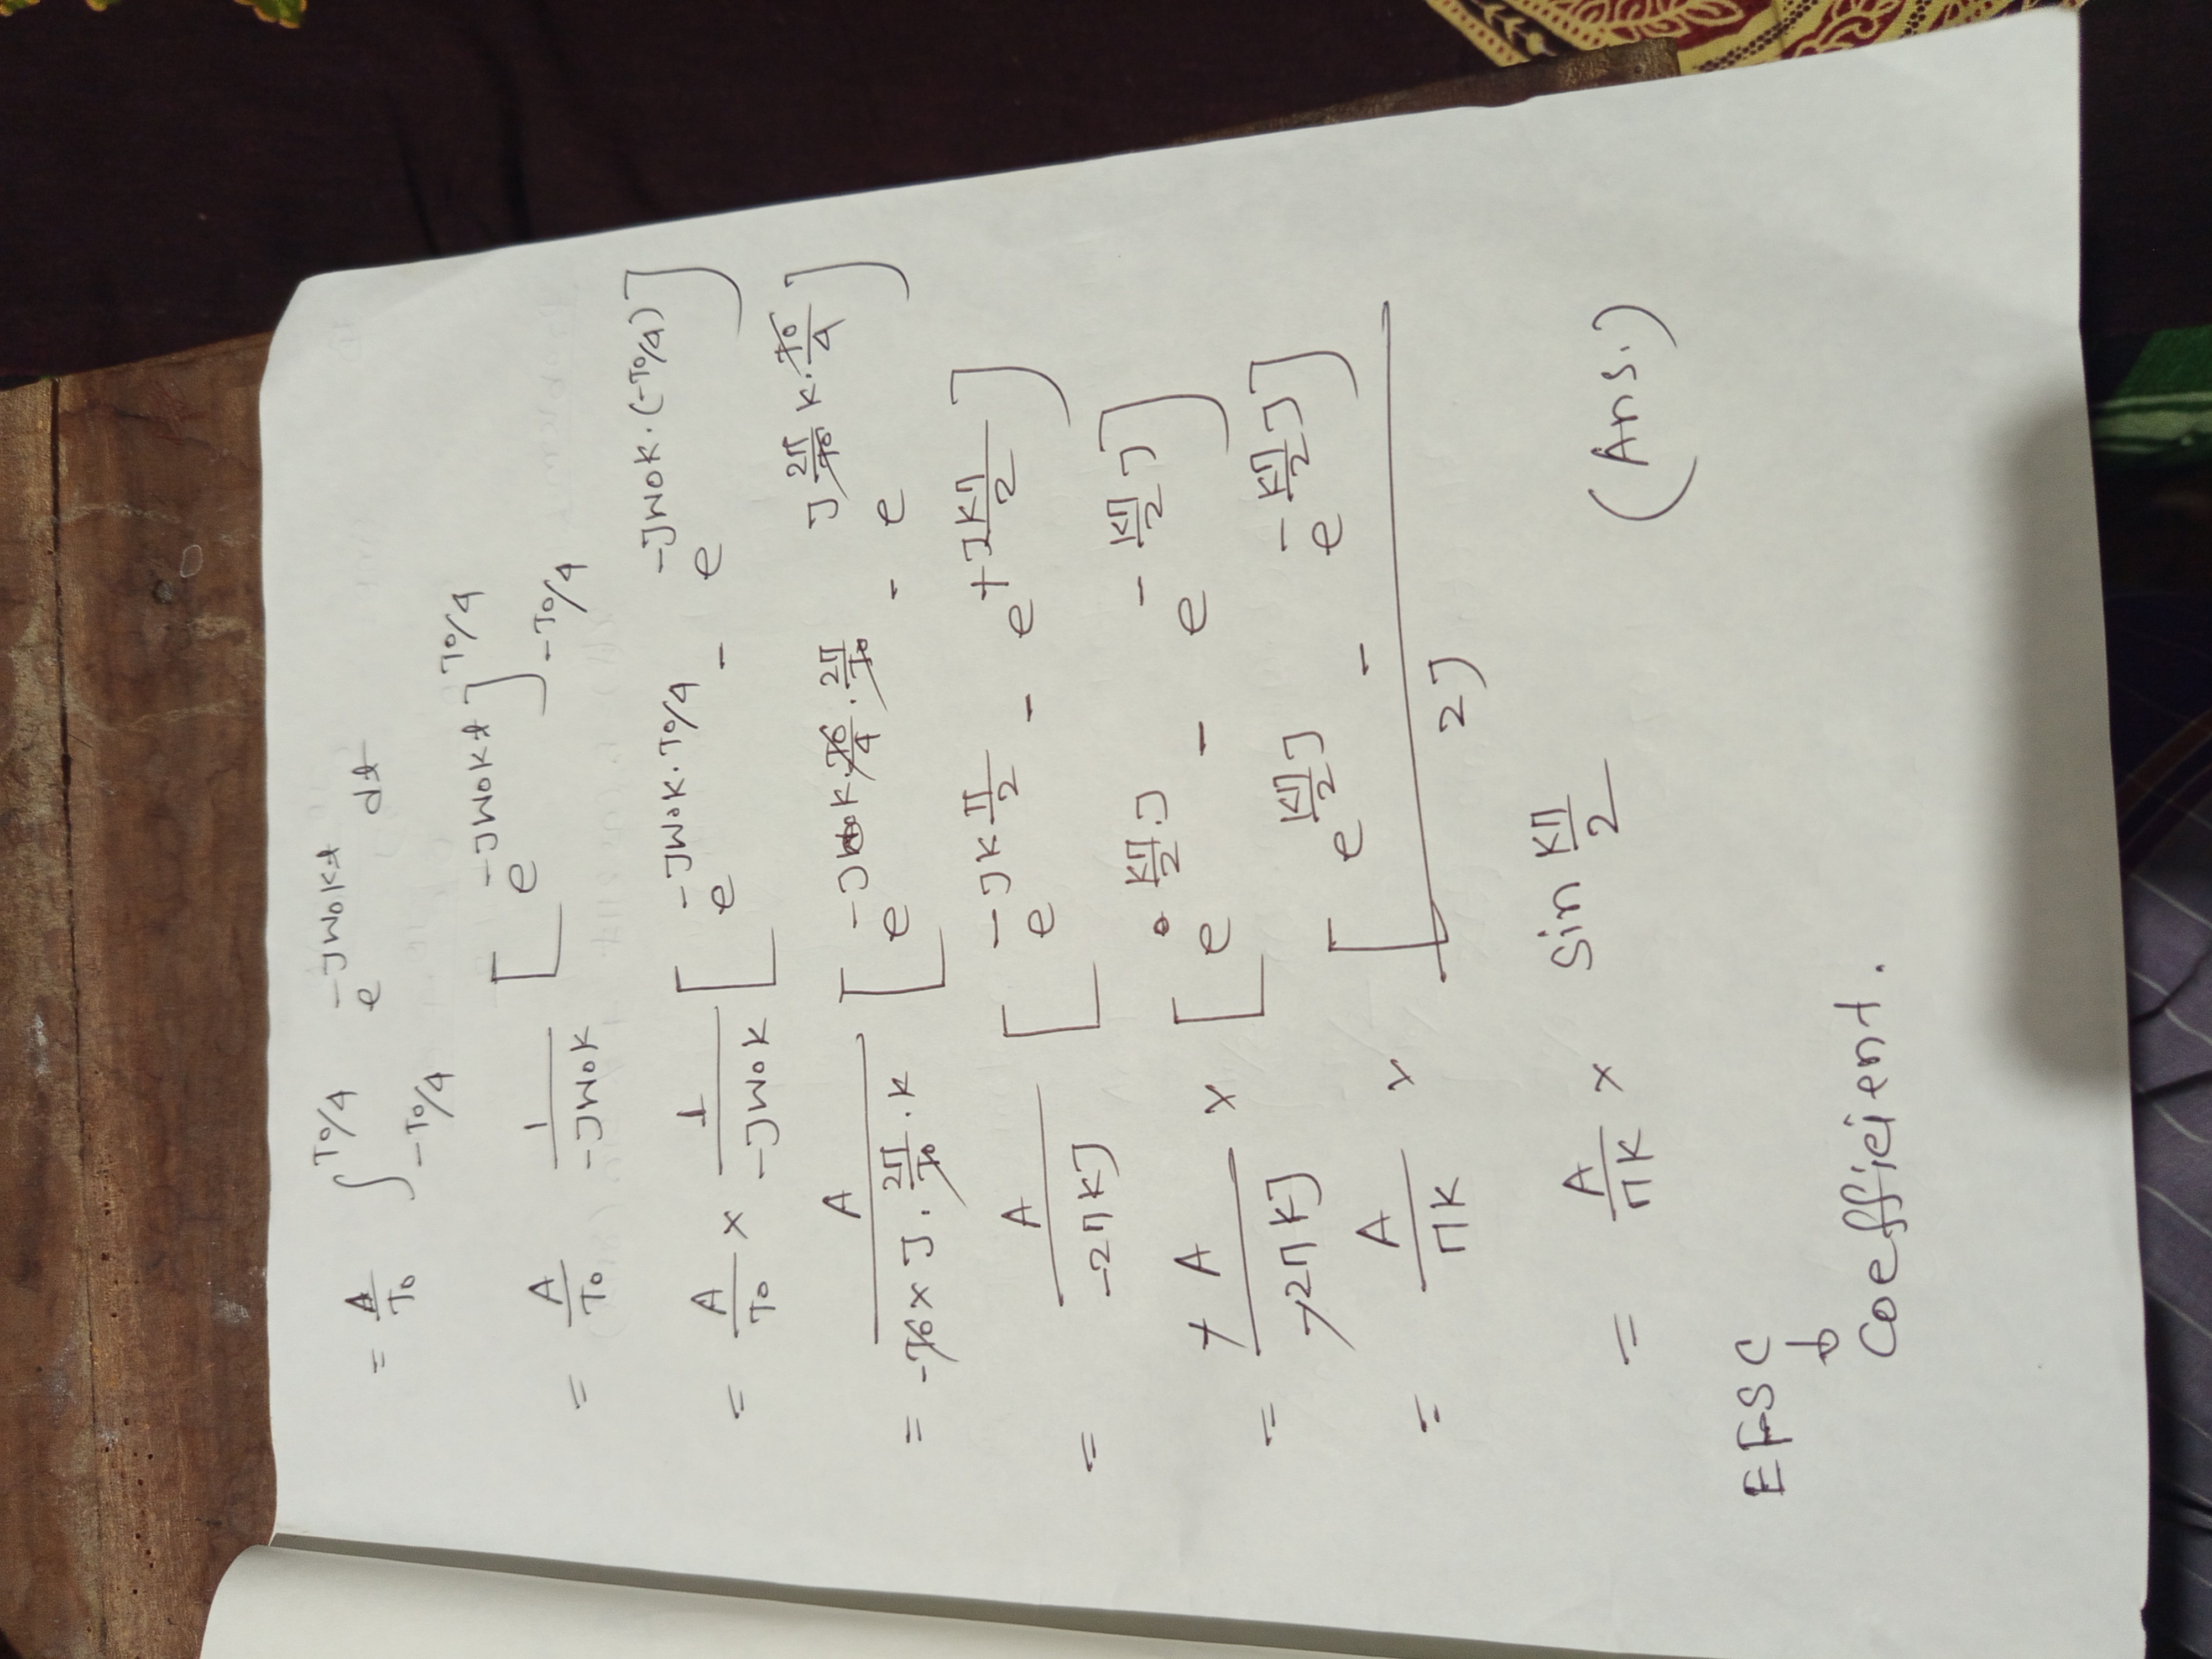 = A/T₀ ∫_{-T₀/4}^{T₀/4} e^{-Jω₀Kt} dt
= A/T₀ 1/(-Jω₀K) [e^{-Jω₀Kt}]_{-T₀/4}^{T₀/4}
= A/T₀ × 1/(-Jω₀K) [e^{-Jω₀K·T₀/4} - e^{-Jω₀K·(-T₀/4)}]
= A/(-T₀ × J·2π/T₀·K) [e^{-JK·T₀/4·2π/T₀} - e^{J 2π/T₀ K·T₀/4}]
= A/(-2πKJ) [e^{-JKπ/2} - e^{+JKπ/2}]
= +A/(+2πKJ) × [e^{Kπ/2·J} - e^{-Kπ/2 J}]
= A/(πK) × [e^{Kπ/2 J} - e^{-Kπ/2 J}]/(2J)
= A/(πK) × Sin Kπ/2 (Ans.)
EFSC
↓
Coefficient.